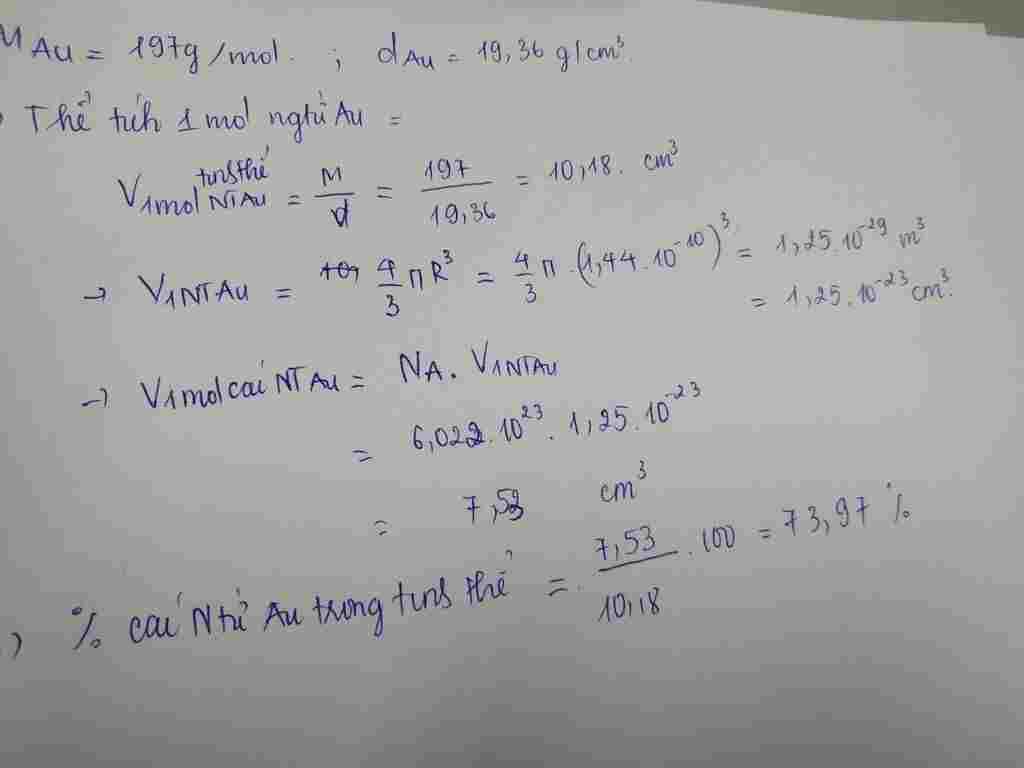 M Au = 197g/mol. ; dAu = 19,36 g/cm³.
Thể tích 1 mol ngtử Au =
V1mol NTAu tinh thể = M/d = 197/19,36 = 10,18. cm³
→ V1NTAu = 4/3 π R³ = 4/3 π . (1,44.10⁻¹⁰)³ = 1,25.10⁻²⁹ m³
= 1,25.10⁻²³ cm³.
→ V1mol cái NTAu = NA. V1NTAu
= 6,022.10²³. 1,25.10⁻²³
= 7,53 cm³
% cái Ntử Au trong tinh thể = 7,53/10,18 . 100 = 73,97 %